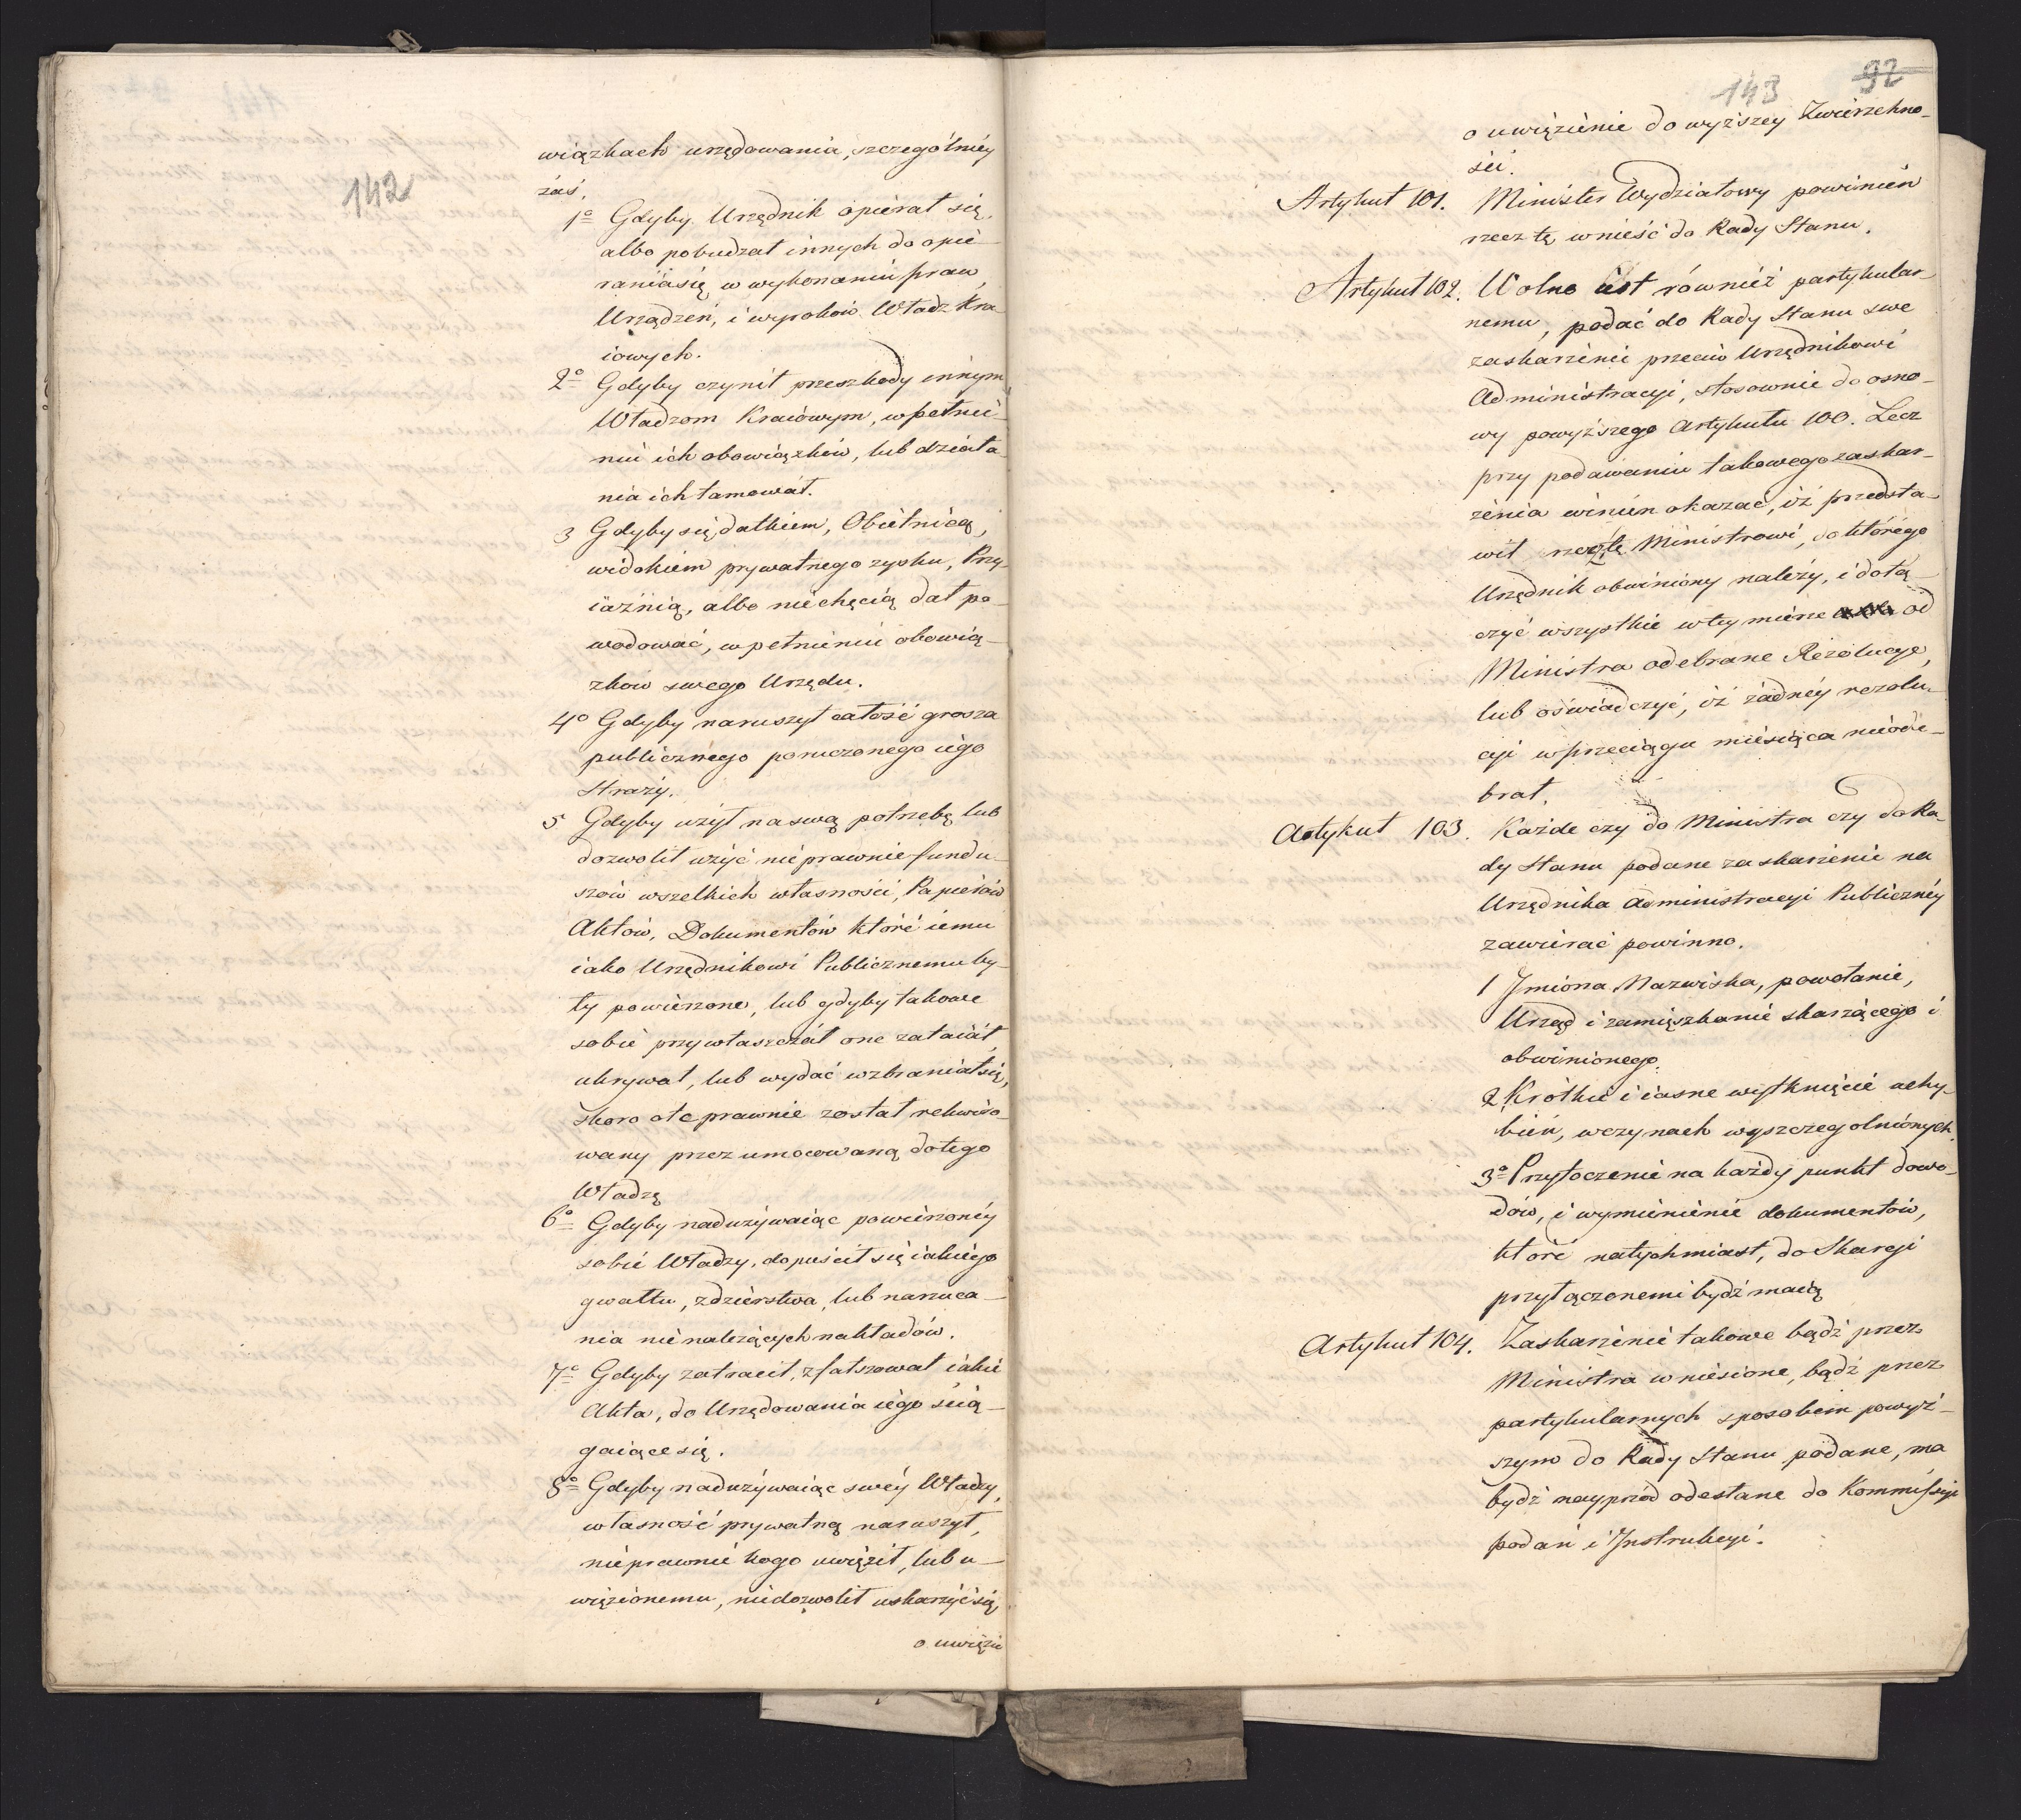 142
wiązkach urzędowania, szczególniéy
zaś,
1º Gdyby Urzędnik opiérał się,
albo pobudzał innych do opié-
raniasię w wykonaniu praw,
Urządzeń, i wyroków Władz Kra-
iowych.
2º Gdyby czynił przeszkody innym
Władzom Kraiowym, w pełnie-
niu ich obowiązków, lub działa-
nia ich tamował.
3 Gdyby się datkiem, Obietnicą,
widokiem prywatnego zysku, Przy-
iaźnią, albo niechęcią dał po-
wodować, w pełnieniu obowią-
zków swego Urzędu.
4º Gdyby naruszył całość grosza
publicznego poruczonego iégo
Straży.
5 Gdyby użył na swą potrzebę lub
dozwolił użyć nieprawnie fundu-
szów wszelkich własności, Papierów
Aktów, Dokumentów któré iemu
iako Urzędnikowi Publicznemu by-
ły powierzone, lub gdyby takowe
sobie przywłaszczał one zataiał,
ukrywał, lub wydać wzbraniał się,
skoro o te prawnie został rekwiro-
wany przez umocowaną do tego
Władzę
6º Gdyby nadużywaiąc powierzonéy
sobie Władzy, dopuścił się iakiégo
gwałtu, zdzierstwa, lub narzuca-
nia nienależących nakładów.
7º Gdyby zatracił, zfałszował iakie
Akta, do Urzędowania iégo ścią-
gaiące się.
8º Gdyby nadużywaiąc swéy Władzy,
własność prywatną naruszył,
nieprawnie kogo uwięził, lub u-
więzionemu, niedozwolił uskarżyć się,
o uwięzie
143 92
o uwięzienie do wyższey Zwierzchno-
ści.
Artykuł 101. Minister Wydziałowy powinien
rzecz tę wnieść do Rady Stanu.
Artykuł 102. Wolno iest również partykular-
nemu, podać do Rady Stanu swe
zaskarżenie przeciw Urzędnikowi
Administracyi, stosownie do osno-
wy powyższego Artykułu 100. Lecz
przy podawaniu takowego zaskar-
żenia winien okazać, iż przedsta-
wił rzecz tę Ministrowi, do którégo
Urzędnik obwiniony należy, i dołą-
czyć wszystkie w tey mierze od
Ministra odebrane Rezolucye,
lub oświadczyć, iż żadnéy rezolu-
cyi w przeciągu miesiąca nieode-
brał.
Artykuł 103. Każde czy do Ministra czy do Ra-
dy Stanu podane zaskarżenie na
Urzędnika Administracyi Publicznéy
zawiérać powinno.
1 Jmiona Nazwiska, powołanie,
Urząd i zamięszkanie skarżącego i
obwinionego.
2 Krótkie i iasne wytknięcie uchy-
bień, w czynach wyszczególnionych.
3º Przytoczenie na każdy punkt dowo-
dów, i wymienienie dokumentów,
któré natychmiast, do Skargi
przyłączonemi bydź maią
Artykuł 104. Zaskarżenie takowe bądź przez
Ministra wniesione, bądź przez
partykularnych sposobem powyż-
szym do Rady Stanu podane, ma
bydź nayprzód odesłane do Kommissyi
podań i Jnstrukcyi.